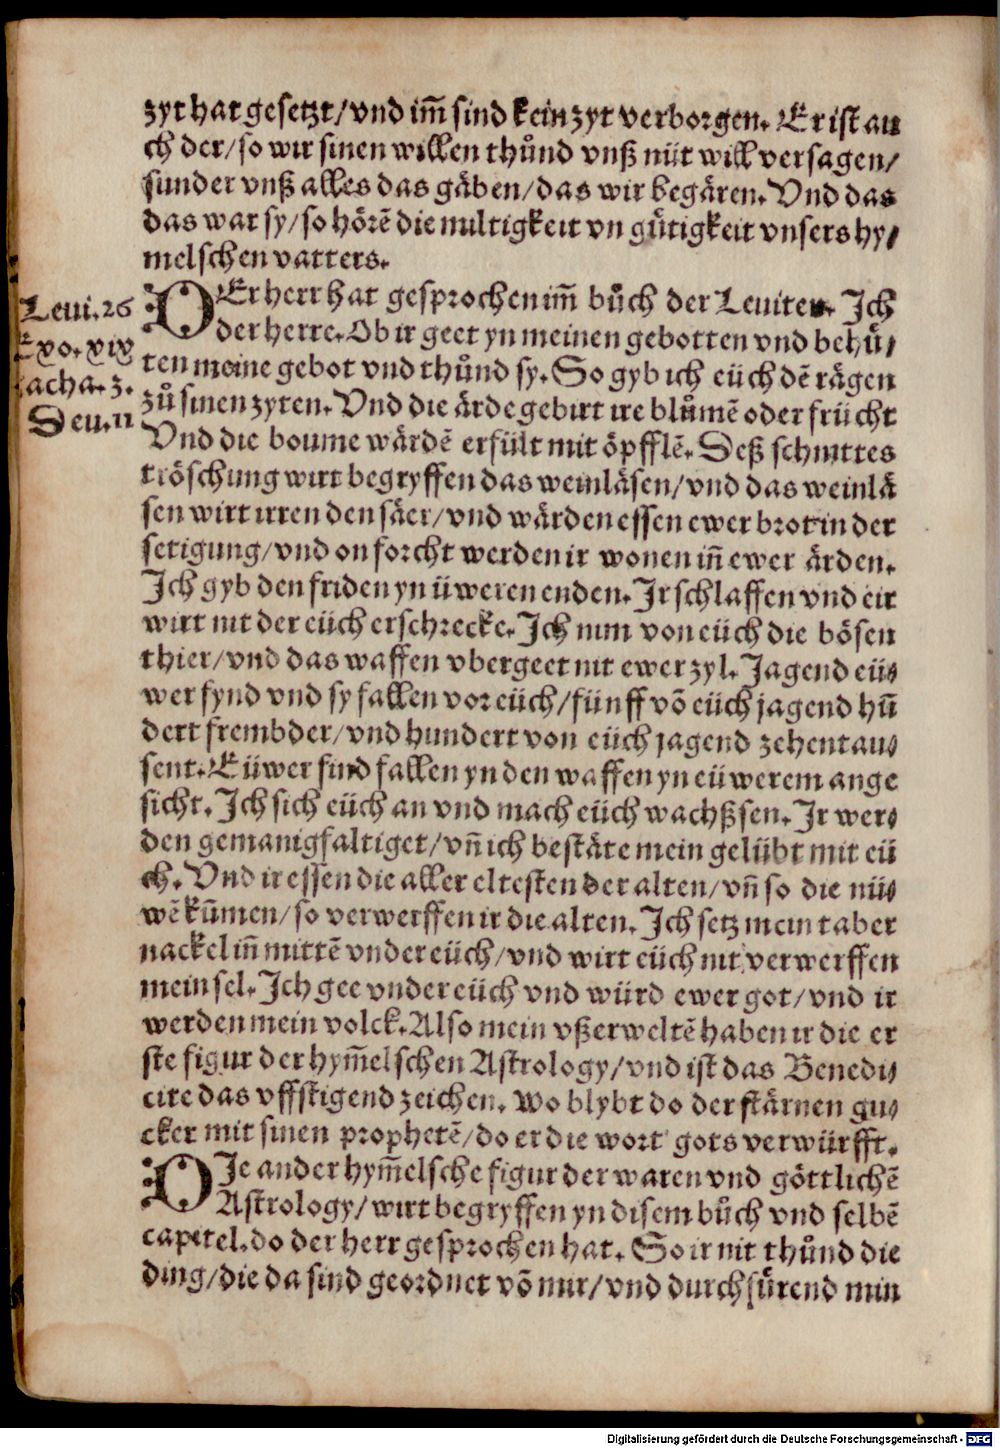 zyt hat gesetzt/vnd im̄ sind kein zyt verborgen. Er ist au
ch der/so wir sinen willen thůnd vnß nüt will versagen/
sunder vnß alles das gäben/das wir begären. Vnd das
das war sy/so hörē die miltigkeit vn gütigkeit vnsers hy⸗
melschen vatters.
Leui. 26
Exo. xix
zacha. z.
Deu. 11
DEr herr hat gesprochen im̄ bůch der Leuiten. Ich
der herre. Ob ir geet yn meinen gebotten vnd behü⸗
ten meine gebot vnd thůnd sy. So gyb ich eüch dē rägen
zů sinen zyten. Vnd die ärde gebirt ire blůmē oder frücht
Vnd die boume wärdē erfült mit öpfflē. Deß schnittes
tröschung wirt begryffen das weinläsen/vnd das weinlä
sen wirt irren den säer/vnd wärden essen ewer brot in der
setigung/vnd on forcht werden ir wonen in̄ ewer ärden.
Ich gyb den friden yn üweren enden. Ir schlaffen vnd eir
wirt nit der eüch erschrecke. Ich nim von eüch die bösen
thier/vnd das waffen vbergeet nit ewer zyl. Jagend eü⸗
wer fynd vnd sy fallen vor eüch/fünff vō eüch jagend hū
dert frembder/vnd hundert von eüch jagend zehentau⸗
sent. Eüwer find fallen yn den waffen yn eüwerem ange
sicht. Ich sich eüch an vnd mach eüch wachßsen. Ir wer⸗
den gemanigfaltiget/vn̄ ich bestäte mein gelübt mit eü
ch. Vnd ir essen die aller eltesten der alten/vn̄ so die nü⸗
wē kūmen/so verwerffen ir die alten. Ich setz mein taber
nackel in̄ mittē vnder eüch/vnd wirt eüch nit verwerffen
mein sel. Ich gee vnder eüch vnd würd ewer got/vnd ir
werden mein volck. Also mein vßerweltē haben ir die er
ste figur der hym̄elschen Astrology/vnd ist das Benedi⸗
cite das vffstigend zeichen. Wo blybt do der stärnen gu⸗
cker mit sinen prophetē/do er die wort gots verwürfft.
DIe ander hym̄elsche figur der waren vnd göttlichē
Astrology/wirt begryffen yn disem bůch vnd selbē
capitel. do der herr gesprochen hat. So ir nit thůnd die
ding/die da sind geordnet vō mir/vnd durchfürend min
Digitalisierung gefördert durch die Deutsche Forschungsgemeinschaft - DFG